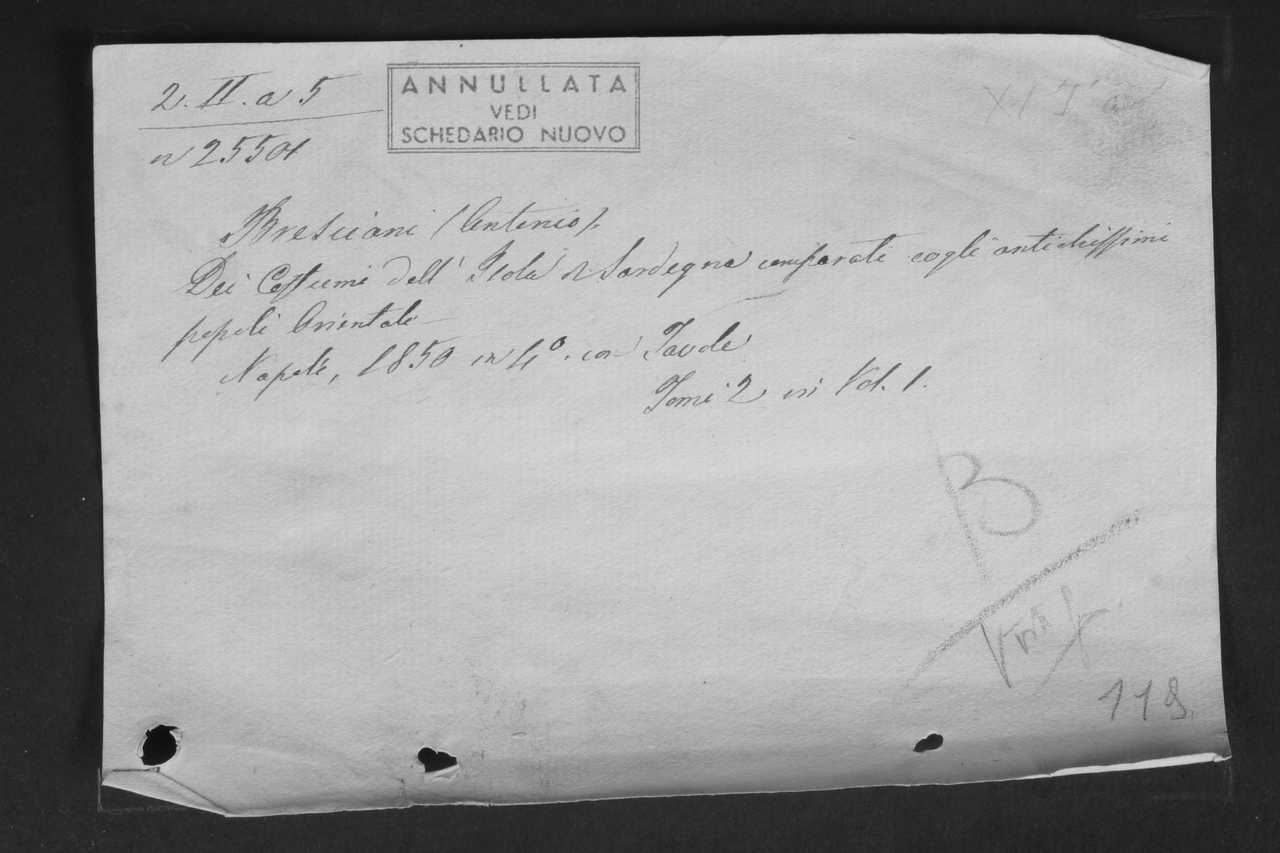 2. II. a 5
n 2550
ANNULLATA
VEDI
SCHEDARIO NUOVO
Bresciani (Antonio).
Dei Costumi dell' Isola di Sardegna comparati cogli antichissimi
popoli Orientali
Napoli, 1850 in 4º. con Tavole
Tomi 2 in Vol. 1.
B
118